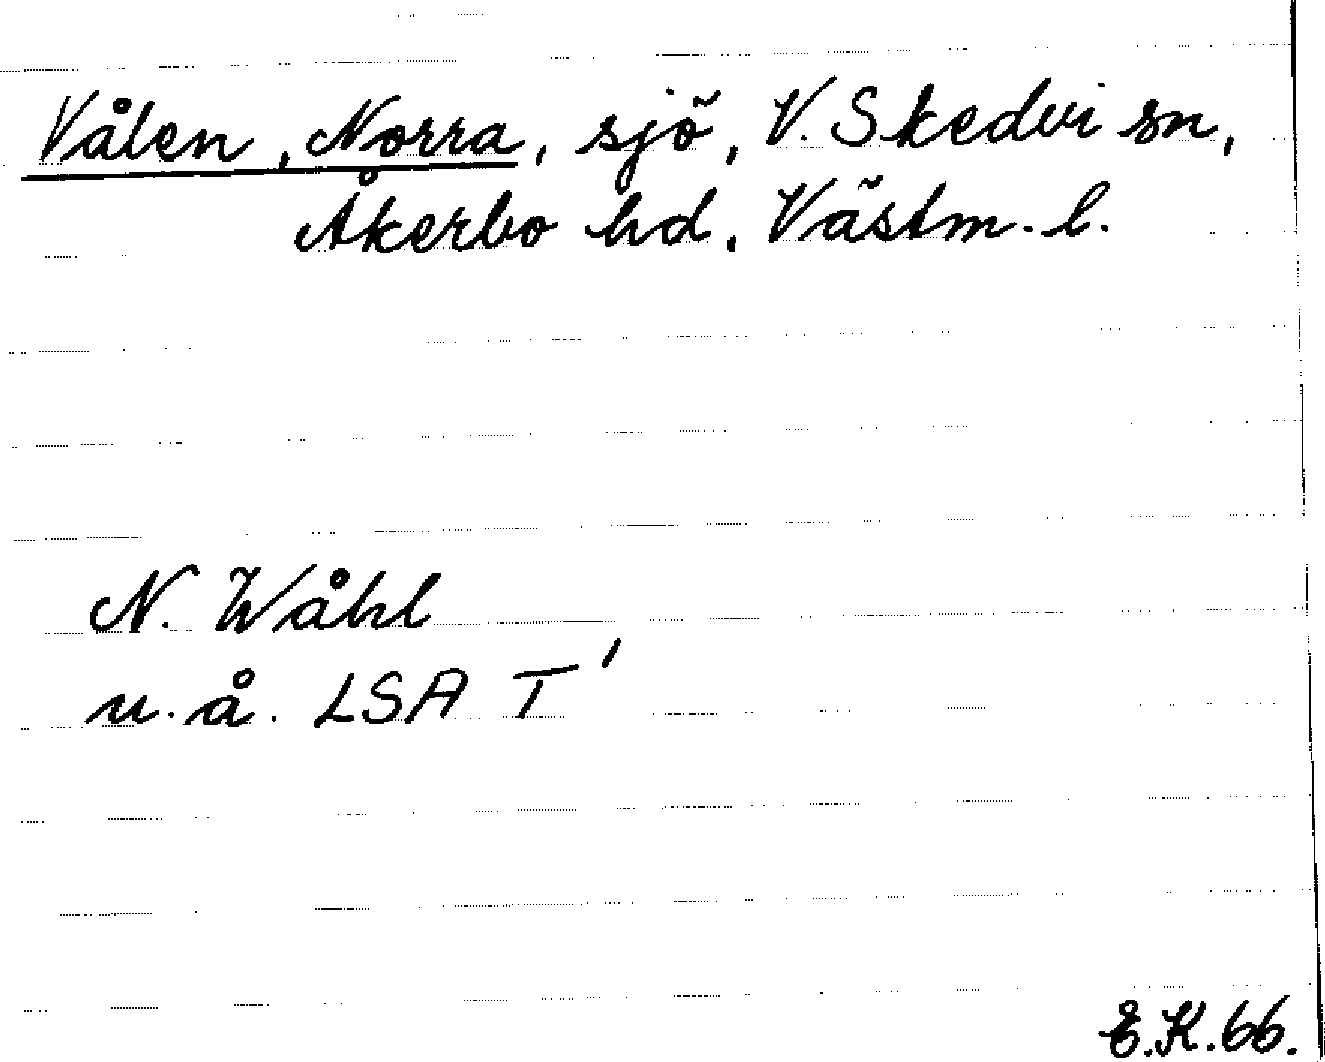 Vålen, Norra, sjö, V. Skedvi sn,
Åkerbo hd, Västm. l.
N. Wåhl
u. å. LSA T'
E.K. 66.